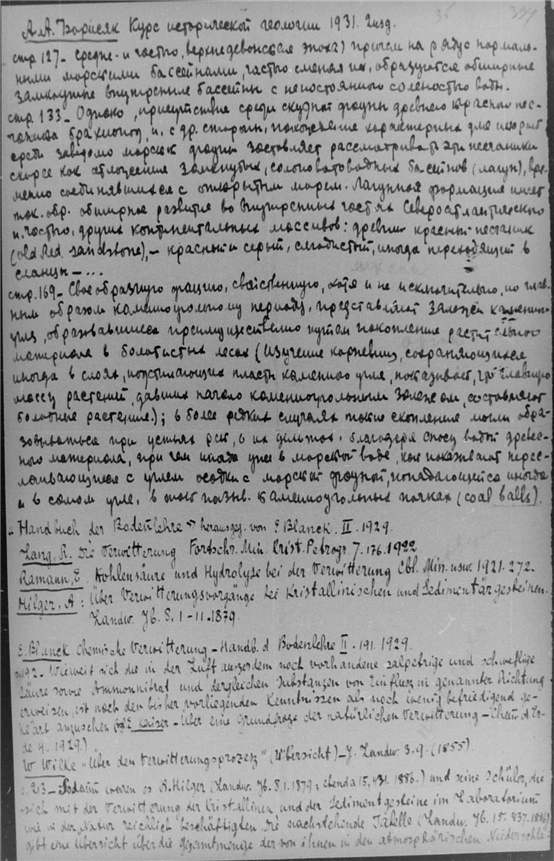 А.А. Борисяк Курс исторической геологии 1931. 2 изд.
стр 127 - средне- и частью, верхнедевонская эпоха) причем на ряду с нормаль-
ными морскими бассейнами, частью сменяя их, образуются обширные
замкнутые внутренние бассейны с непостоянной соленостью воды.
стр. 133 - Однако, присутствие среди скудной фауны древнего красного пес-
чаника брахиопод, и, с др. стороны, нахождение характерных для него рыб
среди заведомо морской фауны заставляет рассматривать эти песчаники
скорее как отложение замкнутых, солоноватоводных бассейнов (лагун), вре-
менно соединявшихся с открытым морем. Лагунная формация имеет
так. обр. обширное развитие во внутренних частях Североатлантического
и, частью, других континентальных массивов: древний красный песчаник
(old Red sandstone), - красный и серый, слюдистый, иногда переходящий в
сланцы - ...
стр. 169 - Своеобразную фацию, свойственную, хотя и не исключительно, но глав-
ным образом каменноугольному периоду, представляют залежи каменного
угля, образовавшиеся преимущественно путем накопления растительного
материала в болотистых лесах (изучение корневищ, сохраняющихся
иногда в слоях, подстилающих пласты каменного угля, показывает, что главную
массу растений, давших начало каменноугольным залежам, составляют
болотные растения.); в более редких случаях такие скопления могли обра-
зовываться при устьях рек, в их дельтах, благодаря сносу водой древес-
ного материала, при чем иногда уже в морской воде, как показывают пересла-
ивающиеся с углем осадки с морской фауной, попадающейся иногда
и в самом угле, в так назыв. каменноугольных почках (coal balls).
Handbuch der Bodenlehre herausgeg. von E. Blanck. II. 1929.
Lang. R. Die Verwitterung Fortschr. Min. Krist. Petrogr 7. 176. 1922
Ramann, E. Kohlensäure und Hydrolyse bei der Verwitterung Cbl. Min. usw. 1921. 272.
Hilger, A: Über Verwitterungsvorgänge bei Kristallinischen und Sedimentärgesteinen.
Landw. Jb. 8. 1-11. 1879.
E. Blanck Chemische Verwitterung - Handb. d. Bodenlehre II. 191. 1929.
192 - Wieweit sich die in der Luft ausserdem noch vorhandene salpetrige und schweflige
Säure sowie Ammonnitrat und dergleichen Substanzen von Einfluss in genannter Richtung
erweisen, ist nach den bisher vorliegenden Kenntnissen als noch wenig befriedigend ge-
klärt anzusehen E. Kaiser - Über eine Grundfrage der natürlichen Verwitterung - Chem. d. Er-
de 4. 1929.)
W. Wicke "Über den Verwitterungsprozess" (Übersicht) - J. Landw. 3. 9. (1855).
213 - Sodann waren es A. Hilger (Landw. Jb. 8. 1. 1879; ebenda 15, 431. 1886.) und seine Schüler, die
sich mit der Verwitterung der Kristallinen und der Sedimentgesteine im Laboratorium
wie in der Natur reichlich beschäftigten. Die nachstehende Tabelle (Landw. Jb. 15. 437. 1886)
gibt eine Übersicht über die Gesamtmenge der von ihnen in den atmosphärischen Niederschlä